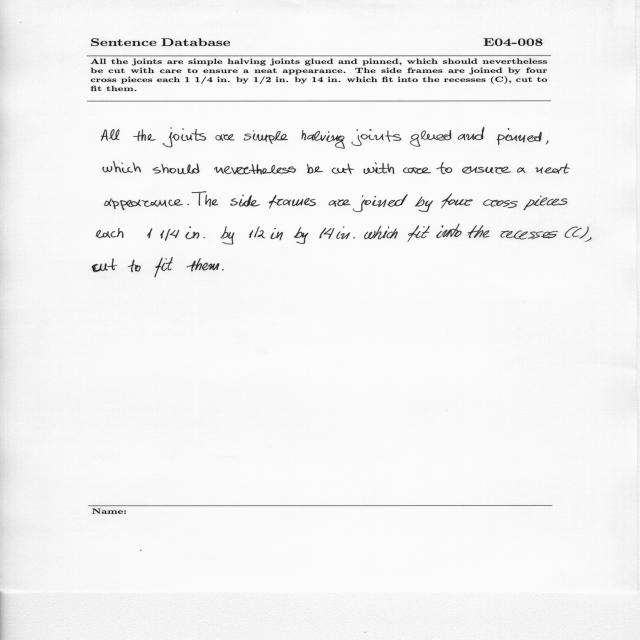 Sentence Database E04-008
All the joints are simple halving joints glued and pinned, which should nevertheless
be cut with care to ensure a neat appearance. The side frames are joined by four
cross pieces each 1 1/4 in. by 1/2 in. by 14 in. which fit into the recesses (C), cut to
fit them.
All the joints are simple halving joints glued and pinned,
which should nevertheless be cut with care to ensure a neat
appearance. The side frames are joined by four cross pieces
each 1 1/4 in. by 1/2 in by 14 in. which fit into the recesses (C),
cut to fit them.
Name: